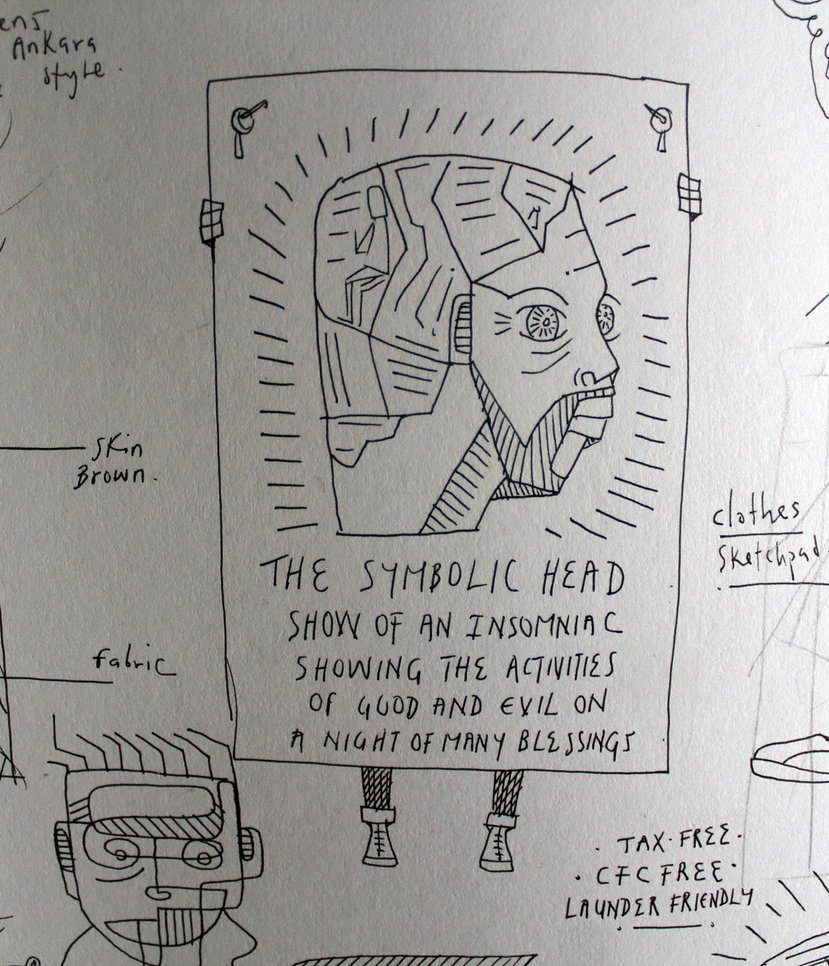 Ankara
style.
Skin
Brown.
clothes
Sketchpad
fabric
THE SYMBOLIC HEAD
SHOW OF AN INSOMNIAC
SHOWING THE ACTIVITIES
OF GOOD AND EVIL ON
A NIGHT OF MANY BLESSINGS
· TAX·FREE·
· CFC FREE·
LAUNDER FRIENDLY